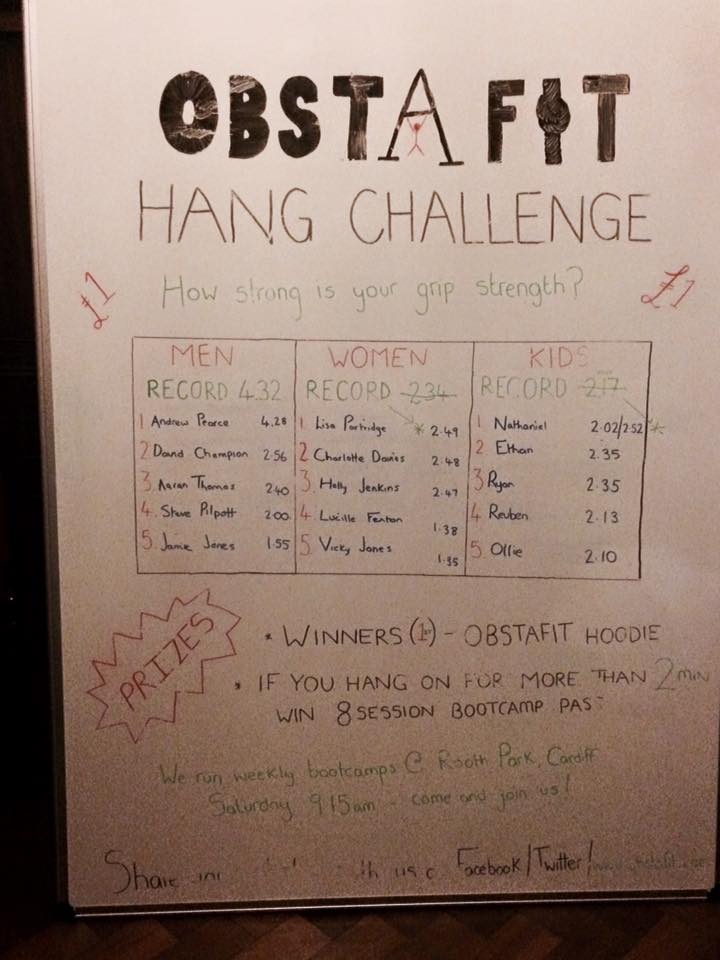 OBSTA FIT
HANG CHALLENGE
£1 How strong is your grip strength? £1
MEN WOMEN KIDS
RECORD 4.32 RECORD 2.34 RECORD 2.17
1 Andrew Pearce 4.28 1. Lisa Partridge * 2.49 1. Nathaniel 2.02/2.52 *
2. David Champion 2.56 2 Charlotte Davies 2.48 2. Ethan 2.35
3. Aaran Thomas 2.40 3. Holly Jenkins 2.47 3 Ryan 2.35
4. Steve Pilpott 2.00 4 Lucille Fenton 1.38 4 Reuben 2.13
5. Jamie Jones 1.55 5 Vicky Jones 1.35 5. Ollie 2.10
PRIZES
* WINNERS (1st) - OBSTAFIT HOODIE
* IF YOU HANG ON FOR MORE THAN 2 MIN
WIN 8 SESSION BOOTCAMP PAS
We run weekly bootcamps @ Roath Park, Cardiff
Saturday 9 15am - come and join us!
Share Facebook/Twitter!